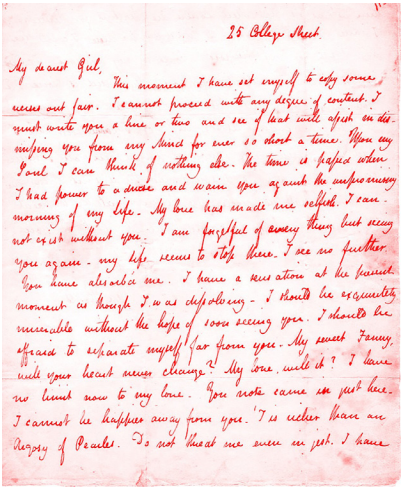 25 College Street.
My dearest Girl,
This moment I have set myself to copy some
verses out fair. I cannot proceed with any degree of content. I
must write you a line or two and see if that will assist in dis-
missing you from my Mind for ever so short a time. Upon my
Soul I can think of nothing else. The time is passed when
I had power to advise and warn you against the unpromising
morning of my Life. My love has made me selfish. I can
not exist without you. I am forgetful of every thing but seeing
you again - my Life seems to stop there. I see no further.
You have absorb'd me. I have a sensation at the present
moment as though I was dissolving - I should be exquisitely
miserable without the hope of soon seeing you. I should be
affraid to separate myself far from you. My sweet Fanny,
will your heart never change? My love, will it? I have
no limit now to my love. You note came in just here.
I cannot be happier away from you. 'T is richer than an
Argosy of Pearles. Do not threat me even in jest. I have